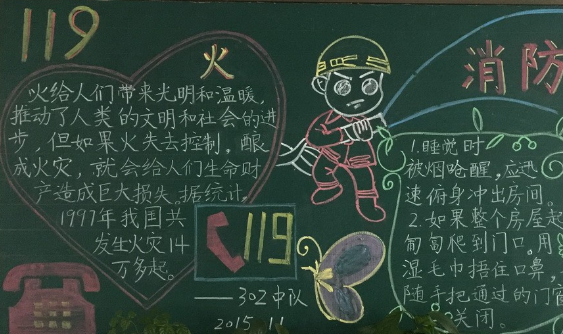 119
火
火给人们带来光明和温暖,
推动了人类的文明和社会的进
步,但如果火失去控制,酿
成火灾,就会给人们生命财
产造成巨大损失。据统计,
1997年我国共
发生火灾14
万多起。
119
——302中队
2015.11
消防
1.睡觉时
被烟呛醒,应迅
速俯身冲出房间。
2.如果整个房屋起
匍匐爬到门口,用
湿毛巾捂住口鼻,
随手把通过的门窗
关闭。